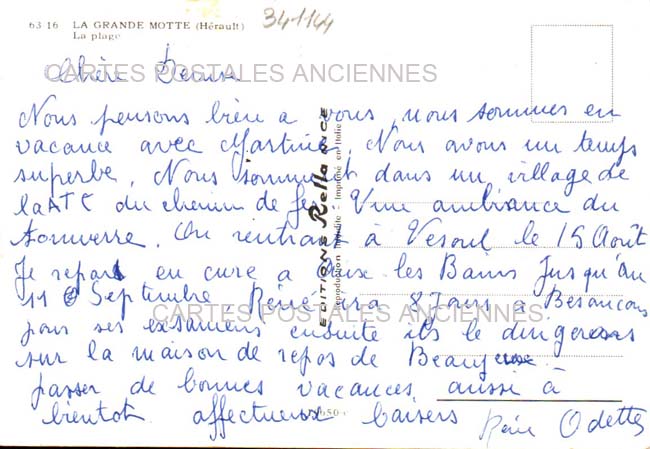 63 16 LA GRANDE MOTTE (Hérault)
La plage
341144
CARTES POSTALES ANCIENNES
Chère Denise
Nous pensons bien a vous, nous sommes en
vacance avec Martine. Nous avons un temps
superbe. Nous sommes dans un village de
la ATC du chemin de fer. Une ambiance du
tonnerre. On rentrant à Vesoul le 15 Août
Je repart en cure a les Bains Jusqu'au
11 Septembre. René ira 8 Jours a Besançon
CARTES POSTALES ANCIENNES
pour ses examens ensuite ils le
sur la maison de repos de
passer de bonnes vacances aussi à
bientot affectueux baisers René Odette
EDITIONS Rella NICE
reproduction interdite - Imprimé en Italie